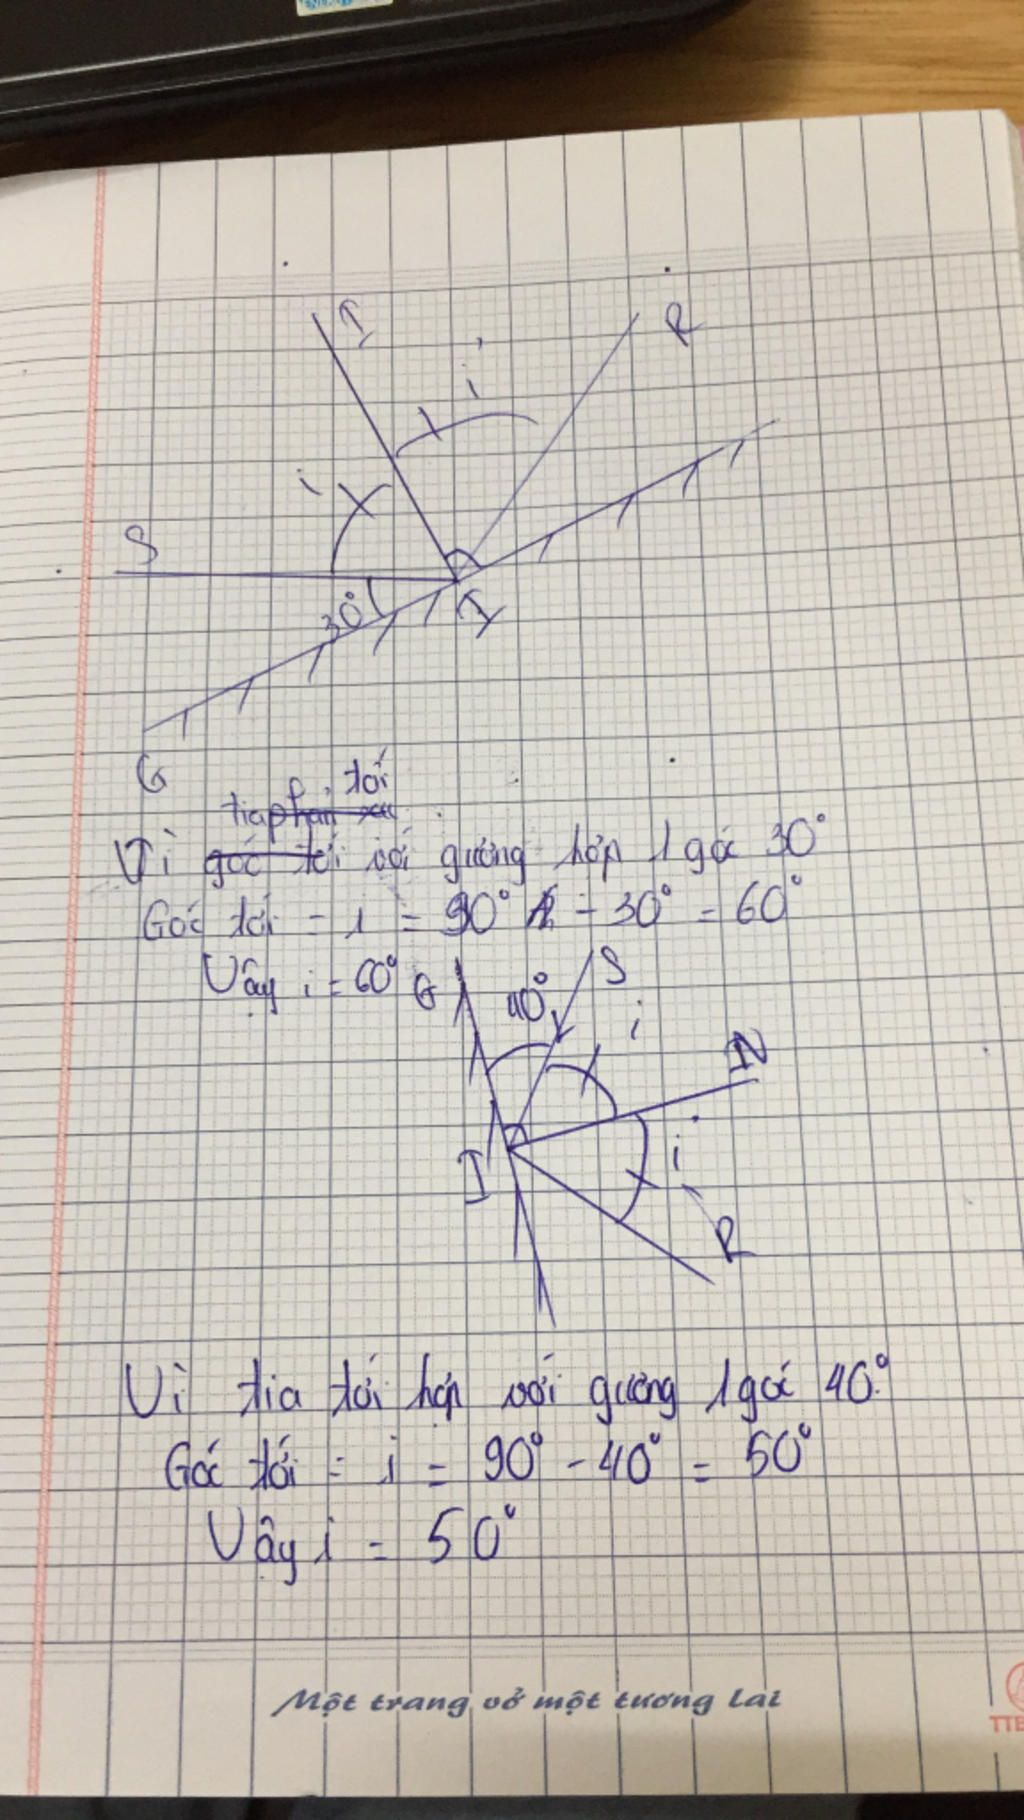 I
R
i'
i
S
30°
I
G
tia tới
Vì với gương hợp 1 góc 30°
Góc tới = i = 90° - 30° = 60°
Vậy i = 60°
G
40°
S
i
N
I
i'
R
Vì tia tới hợp với gương 1 góc 40°
Góc tới = i = 90° - 40° = 50°
Vậy i = 50°
Một trang vở một tương lai